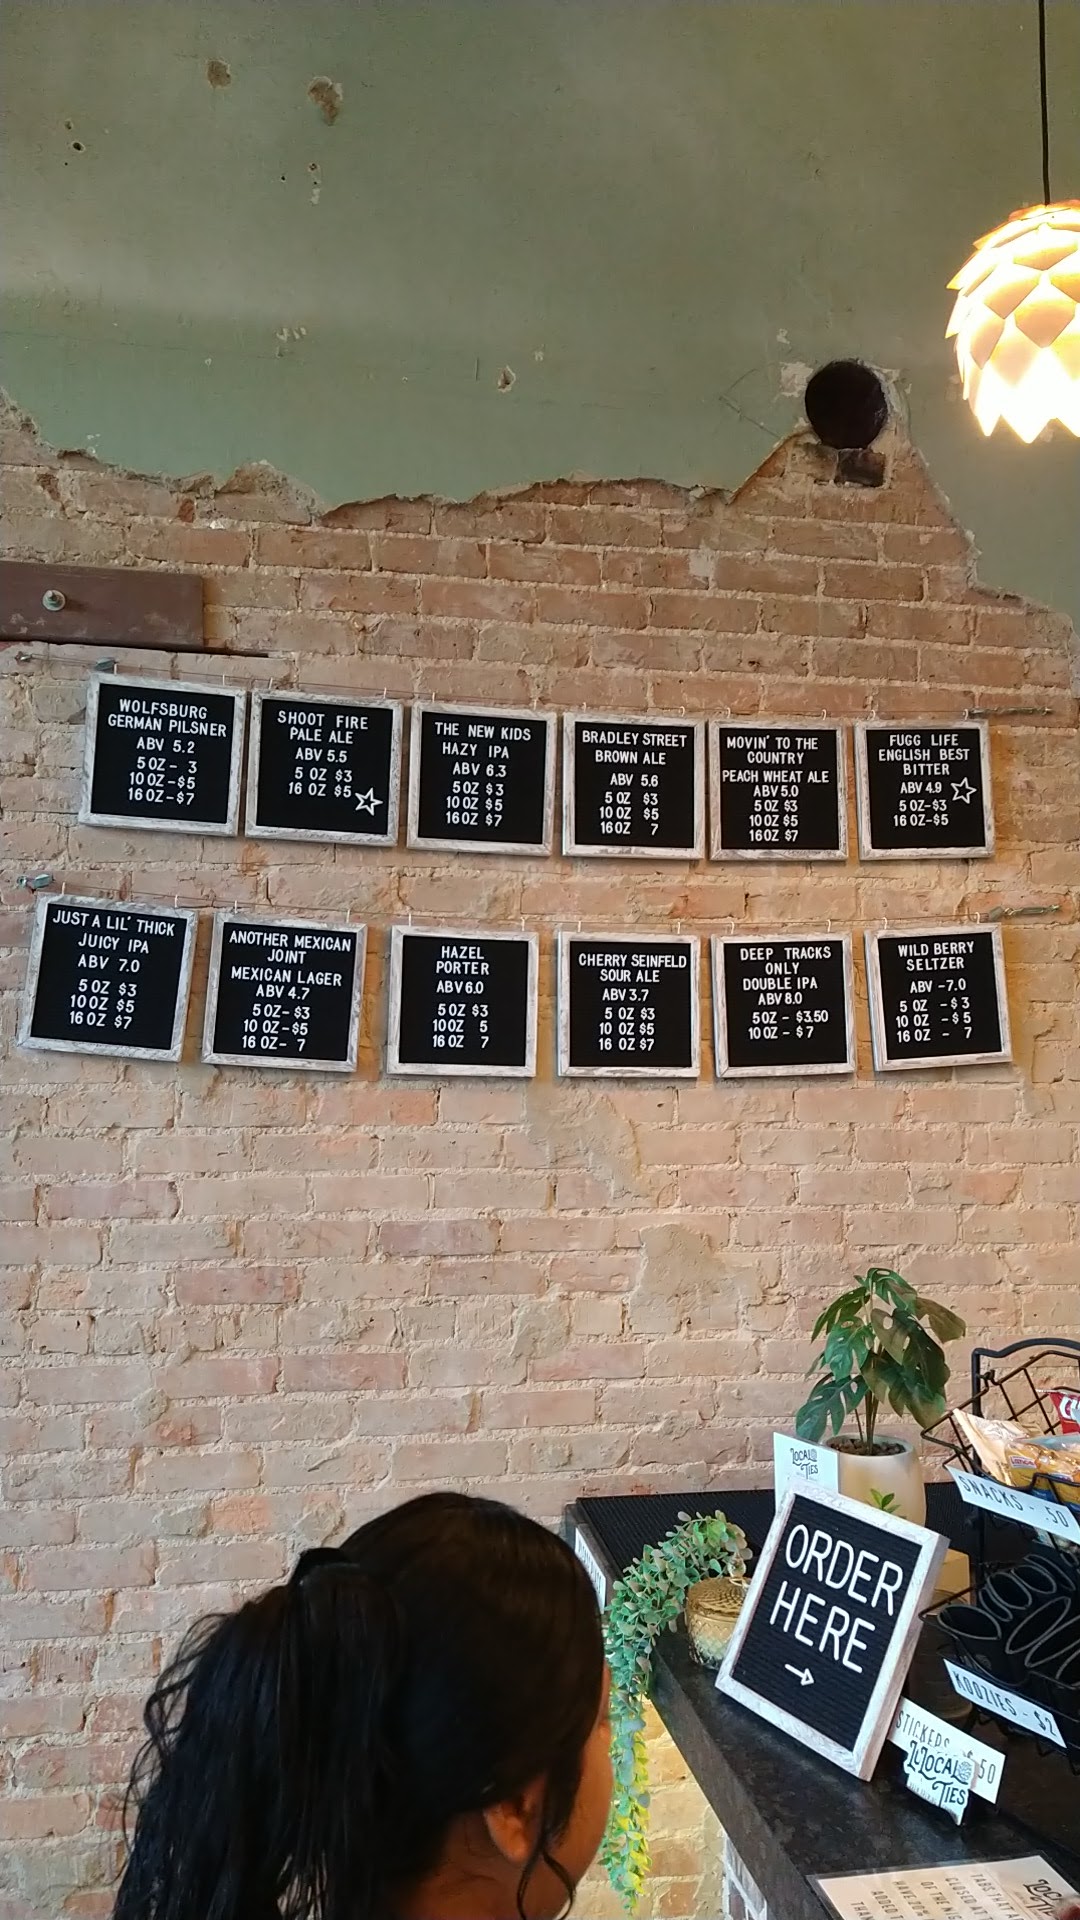 WOLFSBURG
GERMAN PILSNER
ABV 5.2
5 OZ - 3
10 OZ - $5
16 OZ - $7
SHOOT FIRE
PALE ALE
ABV 5.5
5 OZ $3
16 OZ $5
THE NEW KIDS
HAZY IPA
ABV 6.3
5 OZ $3
10 OZ $5
16 OZ $7
BRADLEY STREET
BROWN ALE
ABV 5.6
5 OZ $3
10 OZ $5
16 OZ 7
MOVIN' TO THE
COUNTRY
PEACH WHEAT ALE
ABV 5.0
5 OZ $3
10 OZ $5
16 OZ $7
FUGG LIFE
ENGLISH BEST
BITTER
ABV 4.9
5 OZ-$3
16 OZ-$5
JUST A LIL' THICK
JUICY IPA
ABV 7.0
5 OZ $3
10 OZ $5
16 OZ $7
ANOTHER MEXICAN
JOINT
MEXICAN LAGER
ABV 4.7
5 OZ- $3
10 OZ -$5
16 OZ- 7
HAZEL
PORTER
ABV 6.0
5 OZ $3
10 OZ 5
16 OZ 7
CHERRY SEINFELD
SOUR ALE
ABV 3.7
5 OZ $3
10 OZ $5
16 OZ $7
DEEP TRACKS
ONLY
DOUBLE IPA
ABV 8.0
5 OZ - $3.50
10 OZ - $7
WILD BERRY
SELTZER
ABV -7.0
5 OZ - $3
10 OZ - $5
16 OZ - 7
LOCAL
TIES
SNACKS - .50
ORDER
HERE
KOOZIES - $2
STICKERS
50
LOCAL
TIES